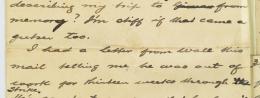 describing my trip to from
memory? I'm stiff if that came a
too.
I had a letter from Walt this
mail telling me he was out of
work for thirteen weeks through the
strike,